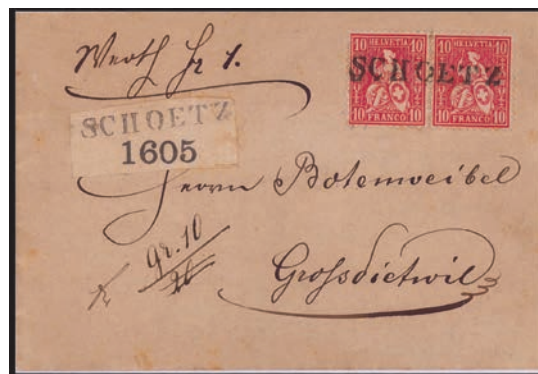 Werth Fr 1.
10 HELVETIA 10 10 HELVETIA 10
SCHOETZ
10 FRANCO 10 10 FRANCO 10
SCHOETZ
1605
Herrn Botenweibel
gr. 10
20
Grossdietwil